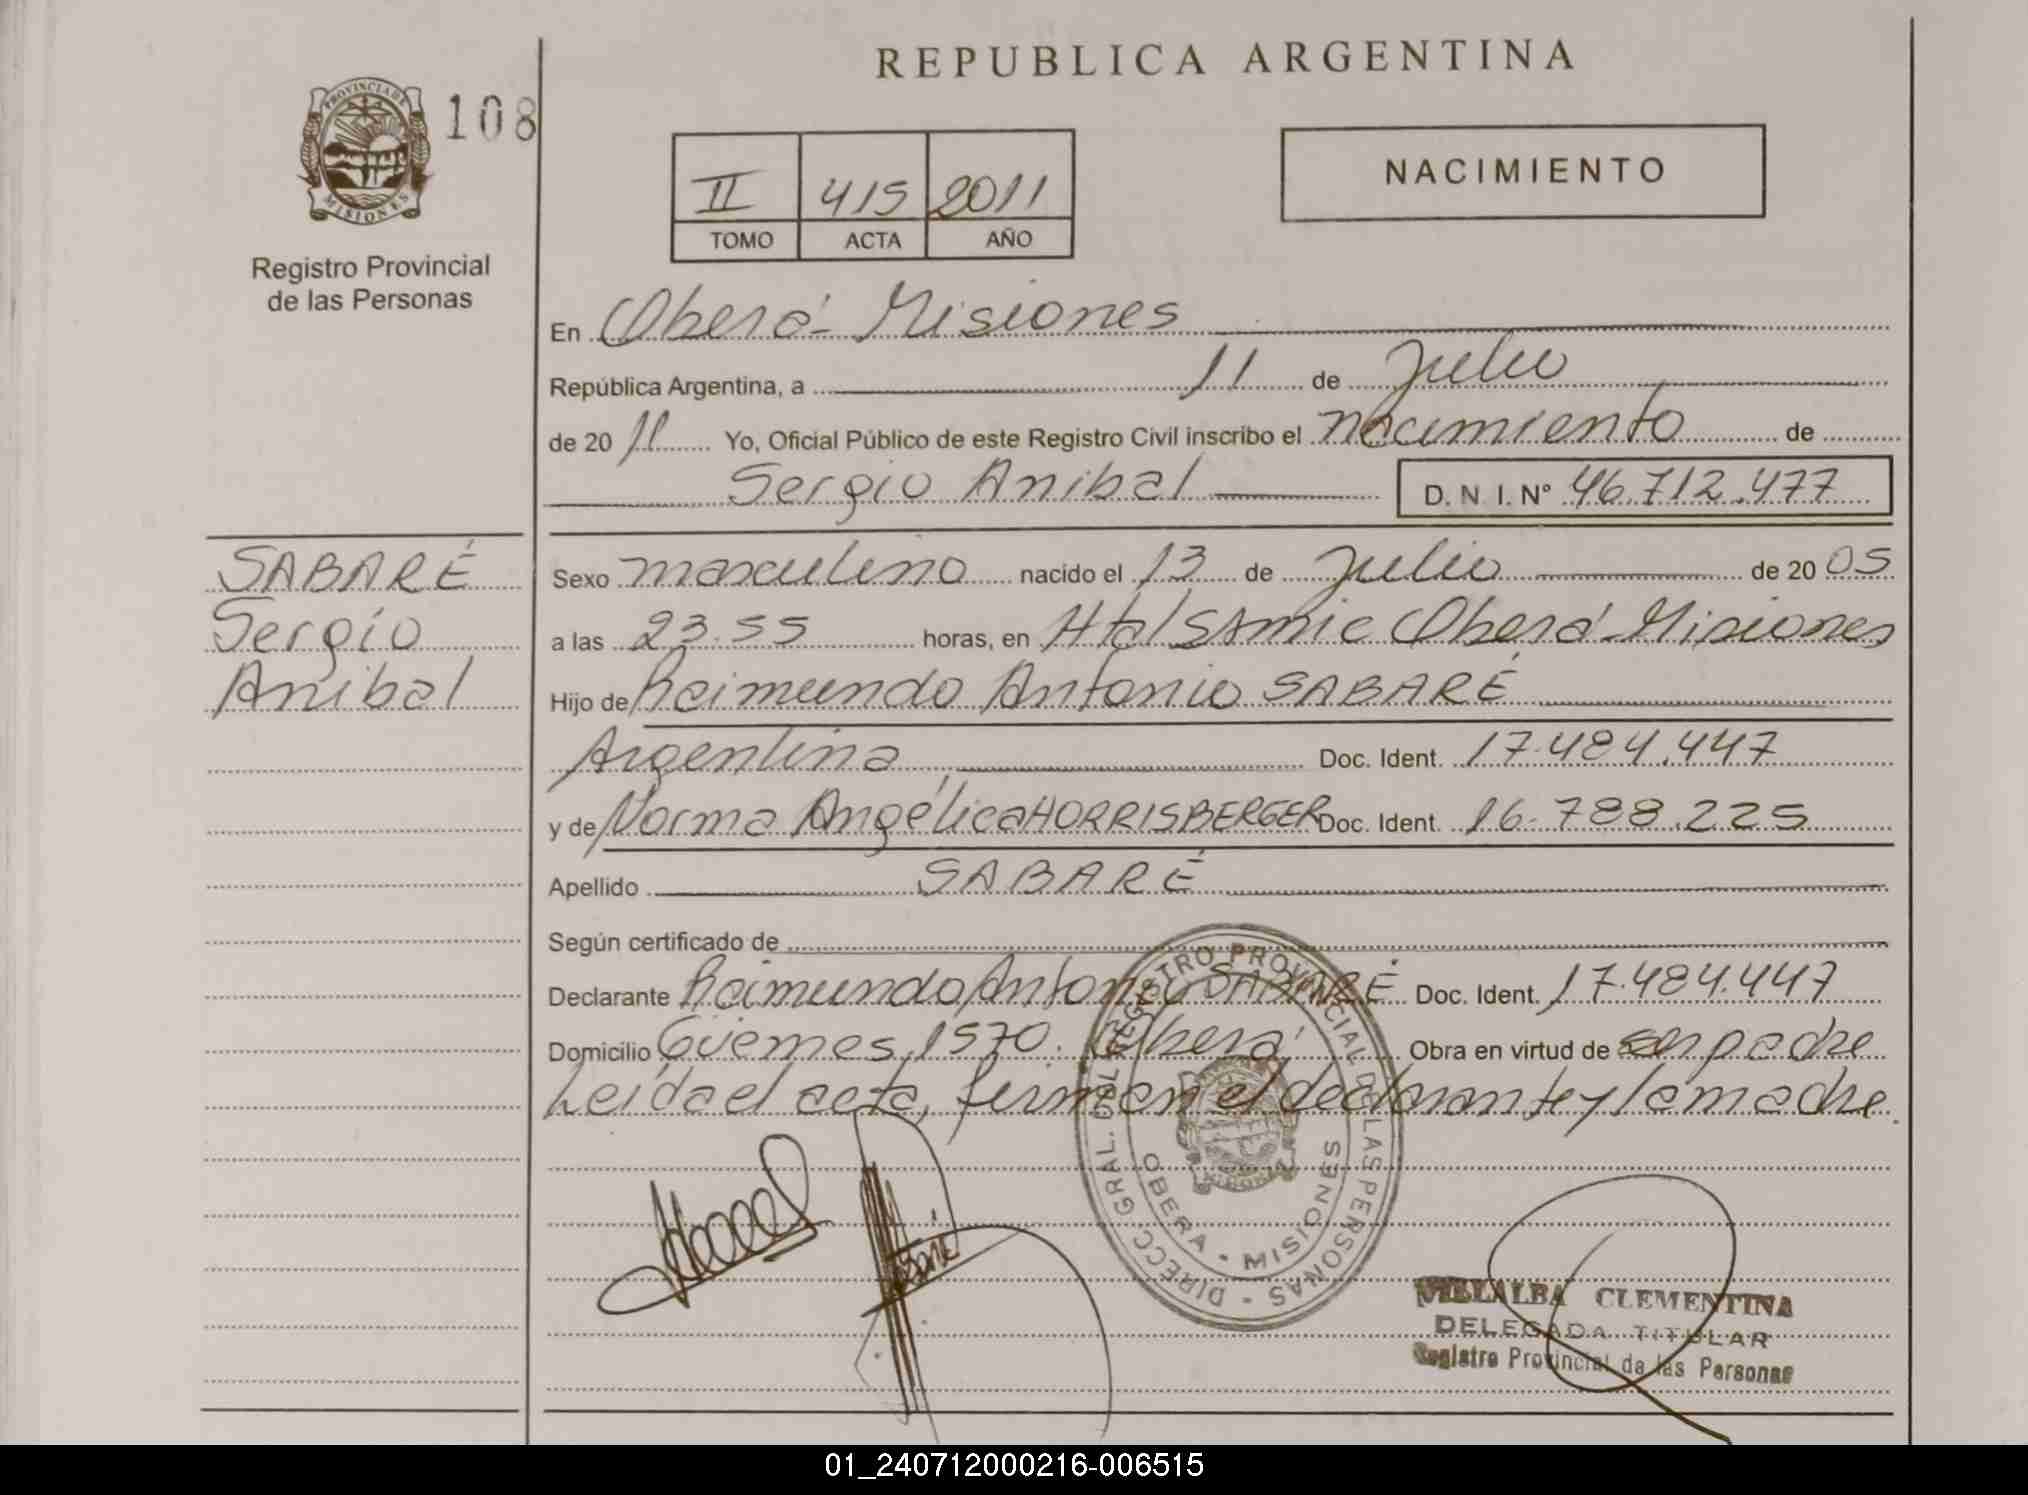 REPUBLICA ARGENTINA
PROVINCIA DE
MISIONES
108
Registro Provincial
de las Personas
II 415 2011
TOMO ACTA AÑO
NACIMIENTO
En Oberá - Misiones
República Argentina, a 11 de Julio
de 20 11 Yo, Oficial Público de este Registro Civil inscribo el nacimiento de
Sergio Anibal D. N. I. Nº 46.712.477
SABARÉ
Sergio
Anibal
Sexo masculino nacido el 13 de Julio de 20 05
a las 23.55 horas, en Htal SAmic Oberá - Misiones
Hijo de Raimundo Antonio SABARÉ
Argentina Doc. Ident. 17.484.447
y de Norma Angélica HORRISBERGER Doc. Ident. 16.788.225
Apellido SABARÉ
Según certificado de
Declarante Raimundo Antonio SABARÉ Doc. Ident. 17.484.447
Domicilio Güemes 1570. Oberá Obra en virtud de ser padre
Leída el acta, firman el declarante y la madre.
DIRECC GRAL. DEL REGISTRO PROVINCIAL DE LAS PERSONAS -
OBERA - MISIONES
VILLALBA CLEMENTINA
DELEGADA TITULAR
Registro Provincial de las Personas
01_240712000216-006515